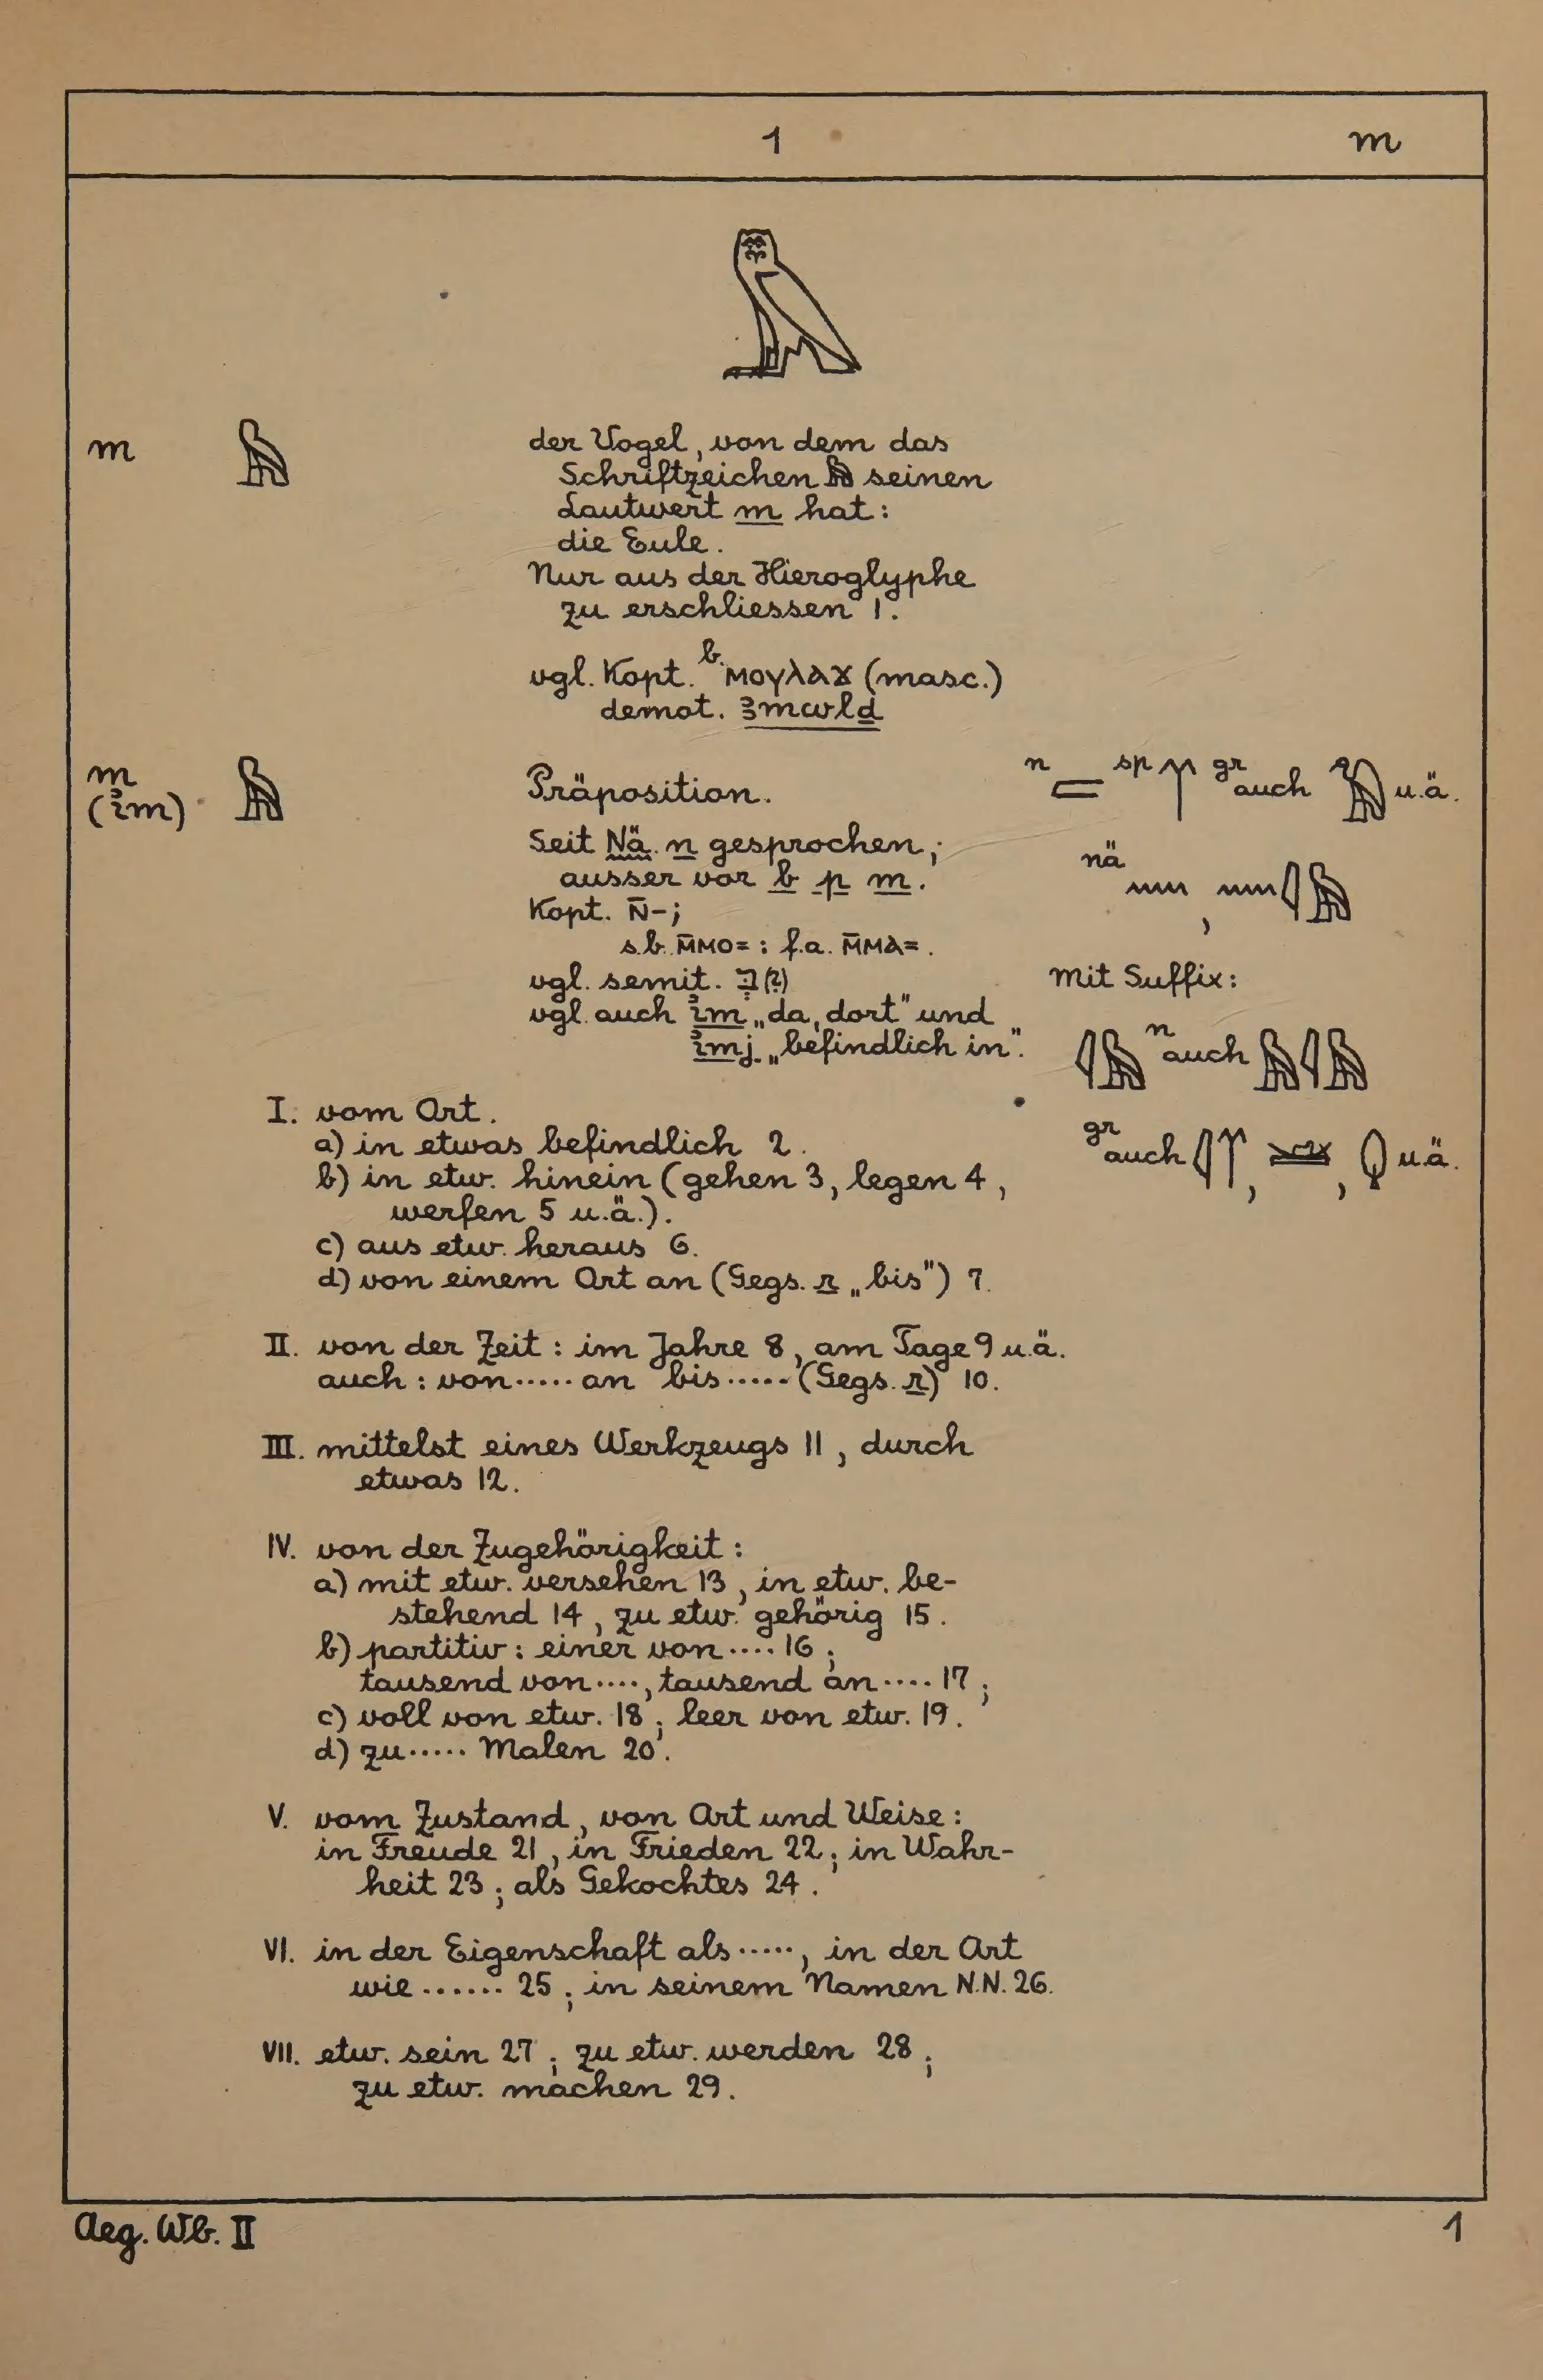 1 m
𓅓
m 𓅓 der Vogel, von dem das
Schriftzeichen 𓅓 seinen
Lautwert m hat:
die Eule.
Nur aus der Hieroglyphe
zu erschliessen 1.
vgl. Kopt. b. ⲙⲟⲩⲗⲁϫ (masc.)
demot. ꜣmwlḏ
m 𓅓 Präposition.
(ı͗m)
n 𓐝 sp gr auch u.ä.
Seit Nä. n gesprochen;
ausser vor b p m.
Kopt. ⲛ̄-;
s.b. ⲙ̄ⲙⲟ= : f.a. ⲙ̄ⲙⲁ= .
vgl. semit. בְּ (?)
vgl. auch ı͗m „da, dort" und
ı͗mj „befindlich in".
nä 𓈖 , 𓈖𓇋𓅓
mit Suffix:
𓇋𓅓 n auch 𓅓𓇋𓅓
gr auch u.ä.
I. vom Ort.
a) in etwas befindlich 2.
b) in etw. hinein (gehen 3, legen 4,
werfen 5 u.ä.).
c) aus etw. heraus 6.
d) von einem Ort an (Gegs. r „bis") 7.
II. von der Zeit: im Jahre 8, am Tage 9 u.ä.
auch: von ..... an bis ..... (Gegs. r) 10.
III. mittelst eines Werkzeugs 11, durch
etwas 12.
IV. von der Zugehörigkeit:
a) mit etw. versehen 13, in etw. be-
stehend 14, zu etw. gehörig 15.
b) partitiv: einer von .... 16;
tausend von ...., tausend an .... 17;
c) voll von etw. 18; leer von etw. 19.
d) zu ..... Malen 20.
V. vom Zustand, von Art und Weise:
in Freude 21, in Frieden 22; in Wahr-
heit 23; als Gekochtes 24.
VI. in der Eigenschaft als ....., in der Art
wie ...... 25; in seinem Namen N.N. 26.
VII. etw. sein 27; zu etw. werden 28;
zu etw. machen 29.
Aeg. Wb. II 1